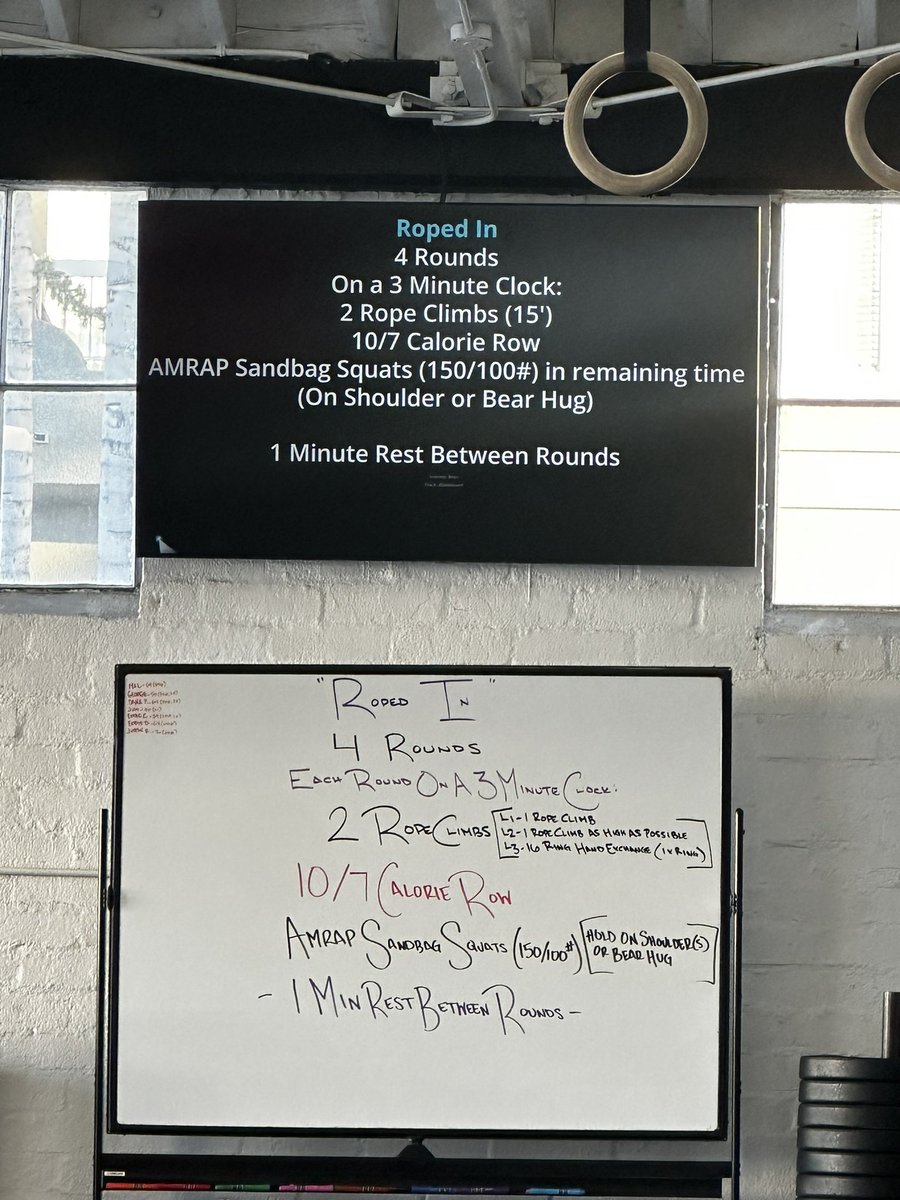 Roped In
4 Rounds
On a 3 Minute Clock:
2 Rope Climbs (15')
10/7 Calorie Row
AMRAP Sandbag Squats (150/100#) in remaining time
(On Shoulder or Bear Hug)
1 Minute Rest Between Rounds
"Roped In"
4 Rounds
Each Round On A 3 Minute Clock:
2 Rope Climbs
L1-1 Rope Climb
L2-1 Rope Climb as high as possible
L3-16 Ring Hand Exchange (1xRing)
10/7 Calorie Row
AMRAP Sandbag Squats (150/100#)
Hold on Shoulder(s)
or Bear Hug
- 1 Min Rest Between Rounds -